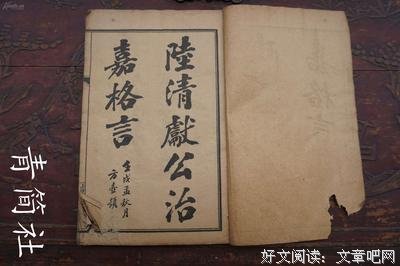 陸清獻公治
嘉格言
壬戌孟秋月
青简社
好文阅读：文章吧网